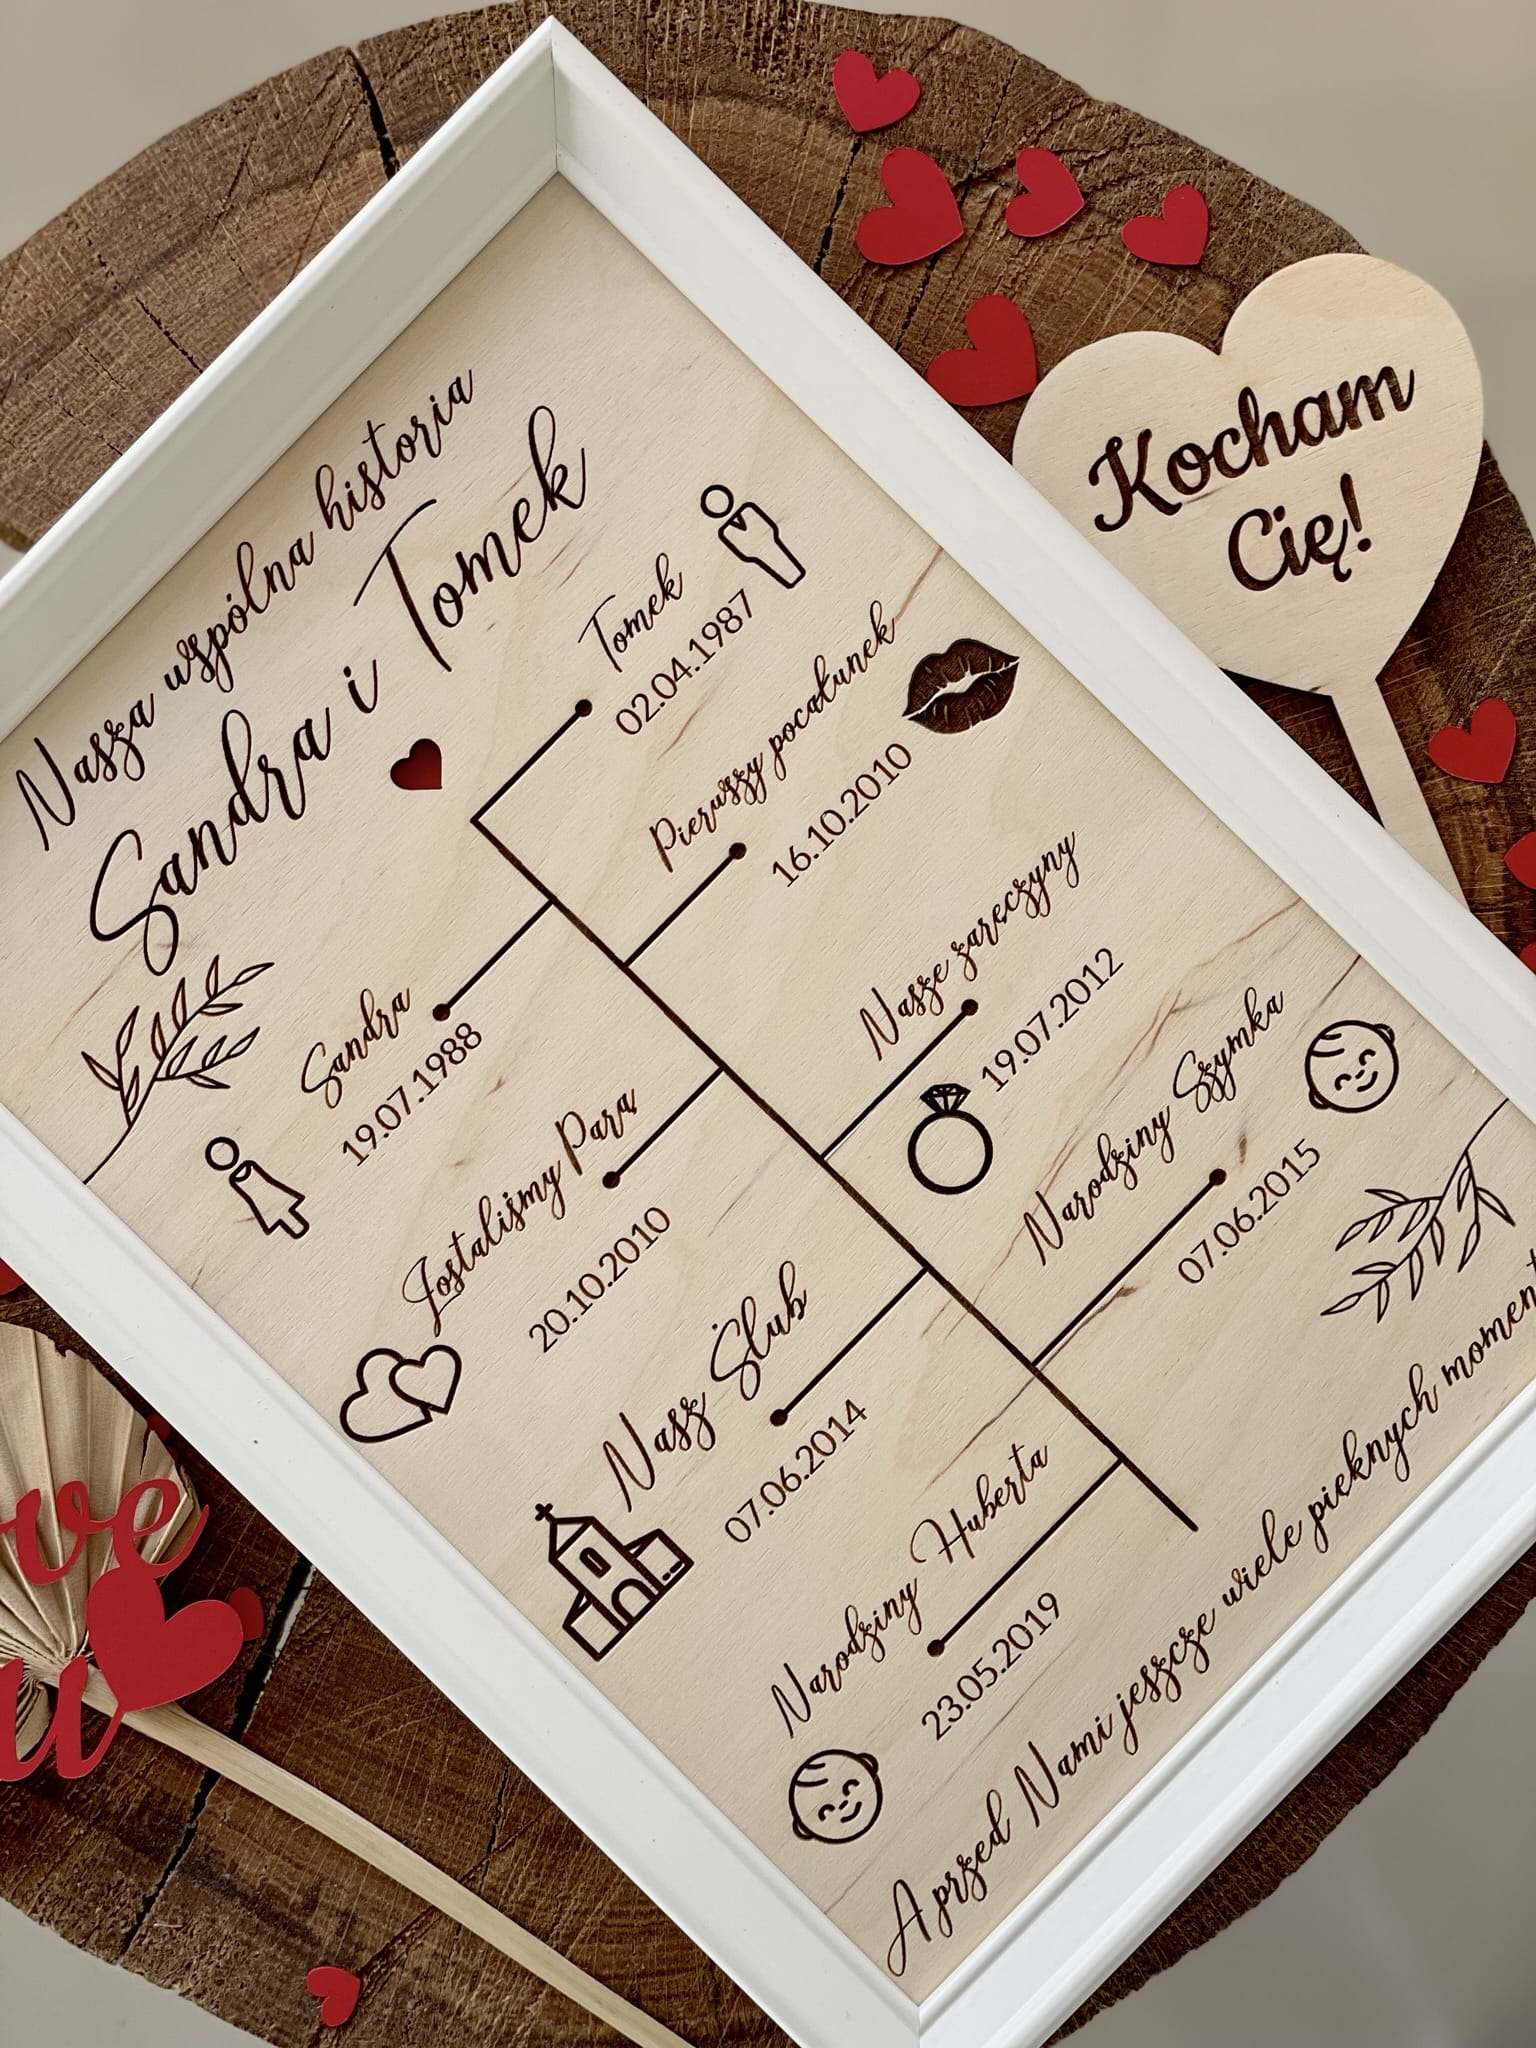 Nasza wspólna historia
Sandra i Tomek
Tomek
02.04.1987
Sandra
19.07.1988
Pierwszy pocałunek
16.10.2010
Zostaliśmy Parą
20.10.2010
Nasze zaręczyny
19.07.2012
Nasz Ślub
07.06.2014
Narodziny Szymka
07.06.2015
Narodziny Huberta
23.05.2019
A przed Nami jeszcze wiele pięknych
Kocham
Cię!